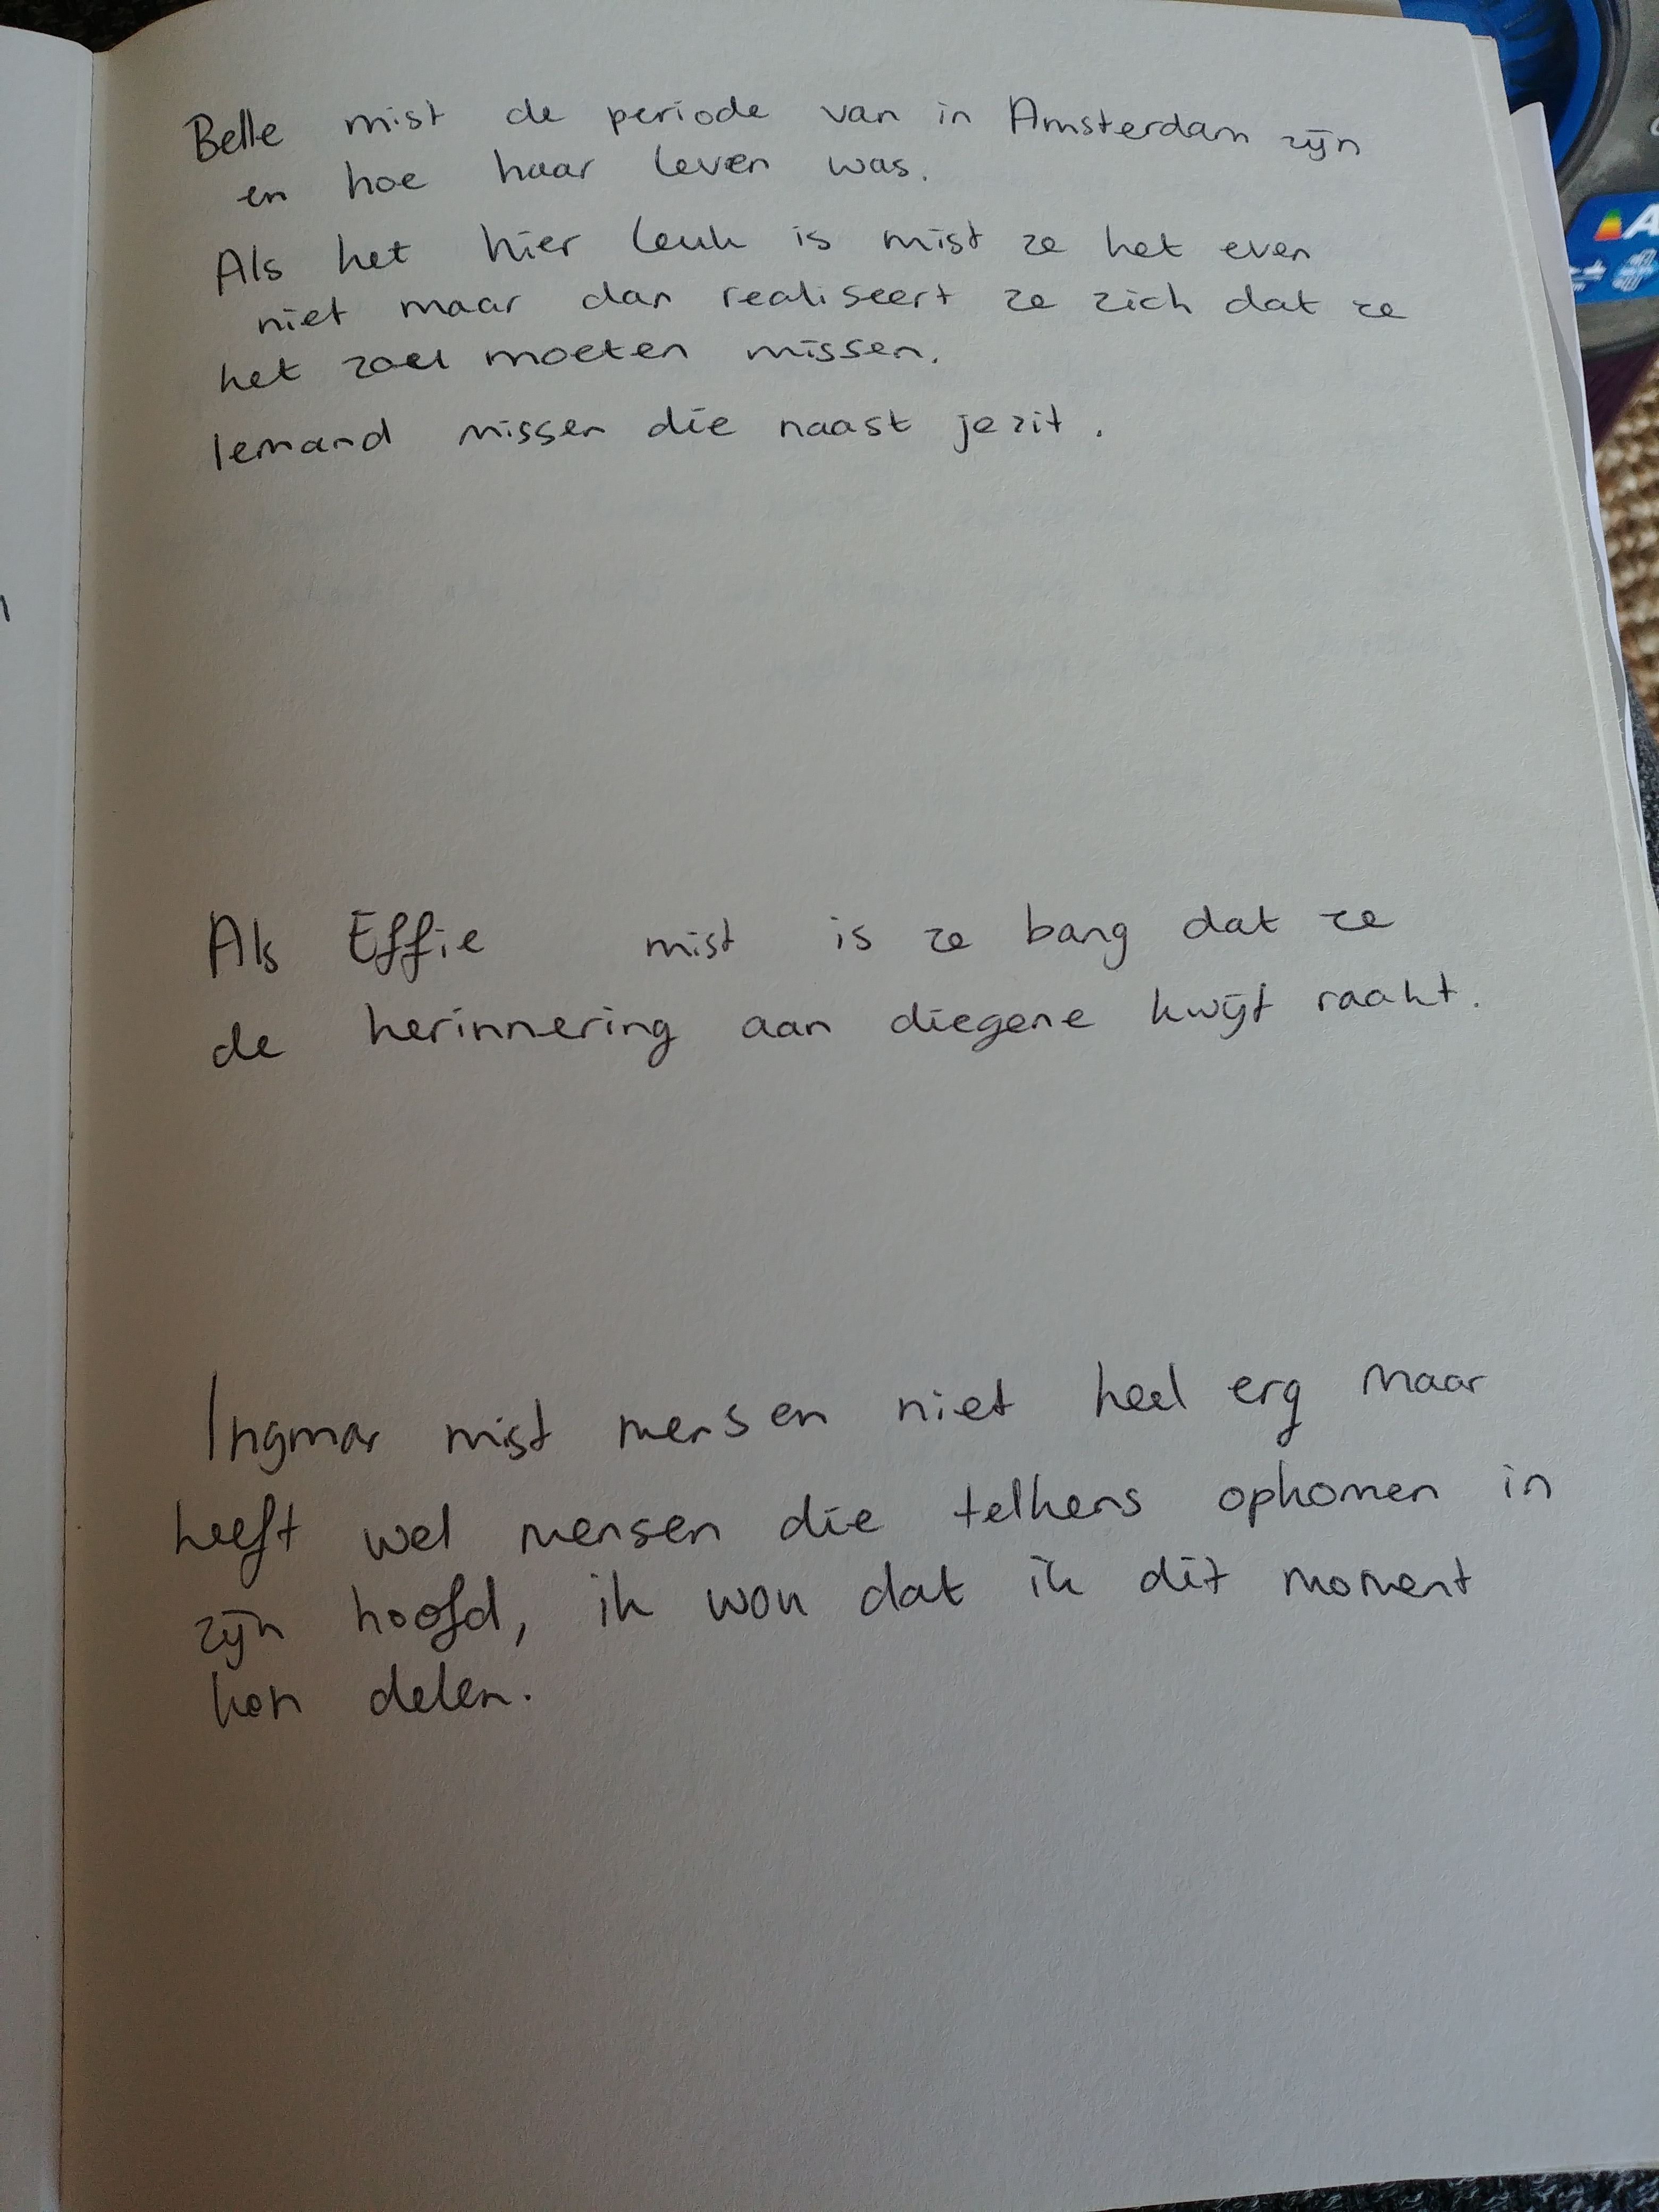 Belle mist de periode van in Amsterdam zijn
en hoe haar leven was.
Als het hier leuk is mist ze het even
niet maar dan realiseert ze zich dat ze
het zou moeten missen.
Iemand missen die naast je zit.
Als Effie mist is ze bang dat ze
de herinnering aan diegene kwijt raakt.
Ingmar mist mensen niet heel erg maar
heeft wel mensen die telkens opkomen in
zijn hoofd, ik wou dat ik dit moment
kon delen.